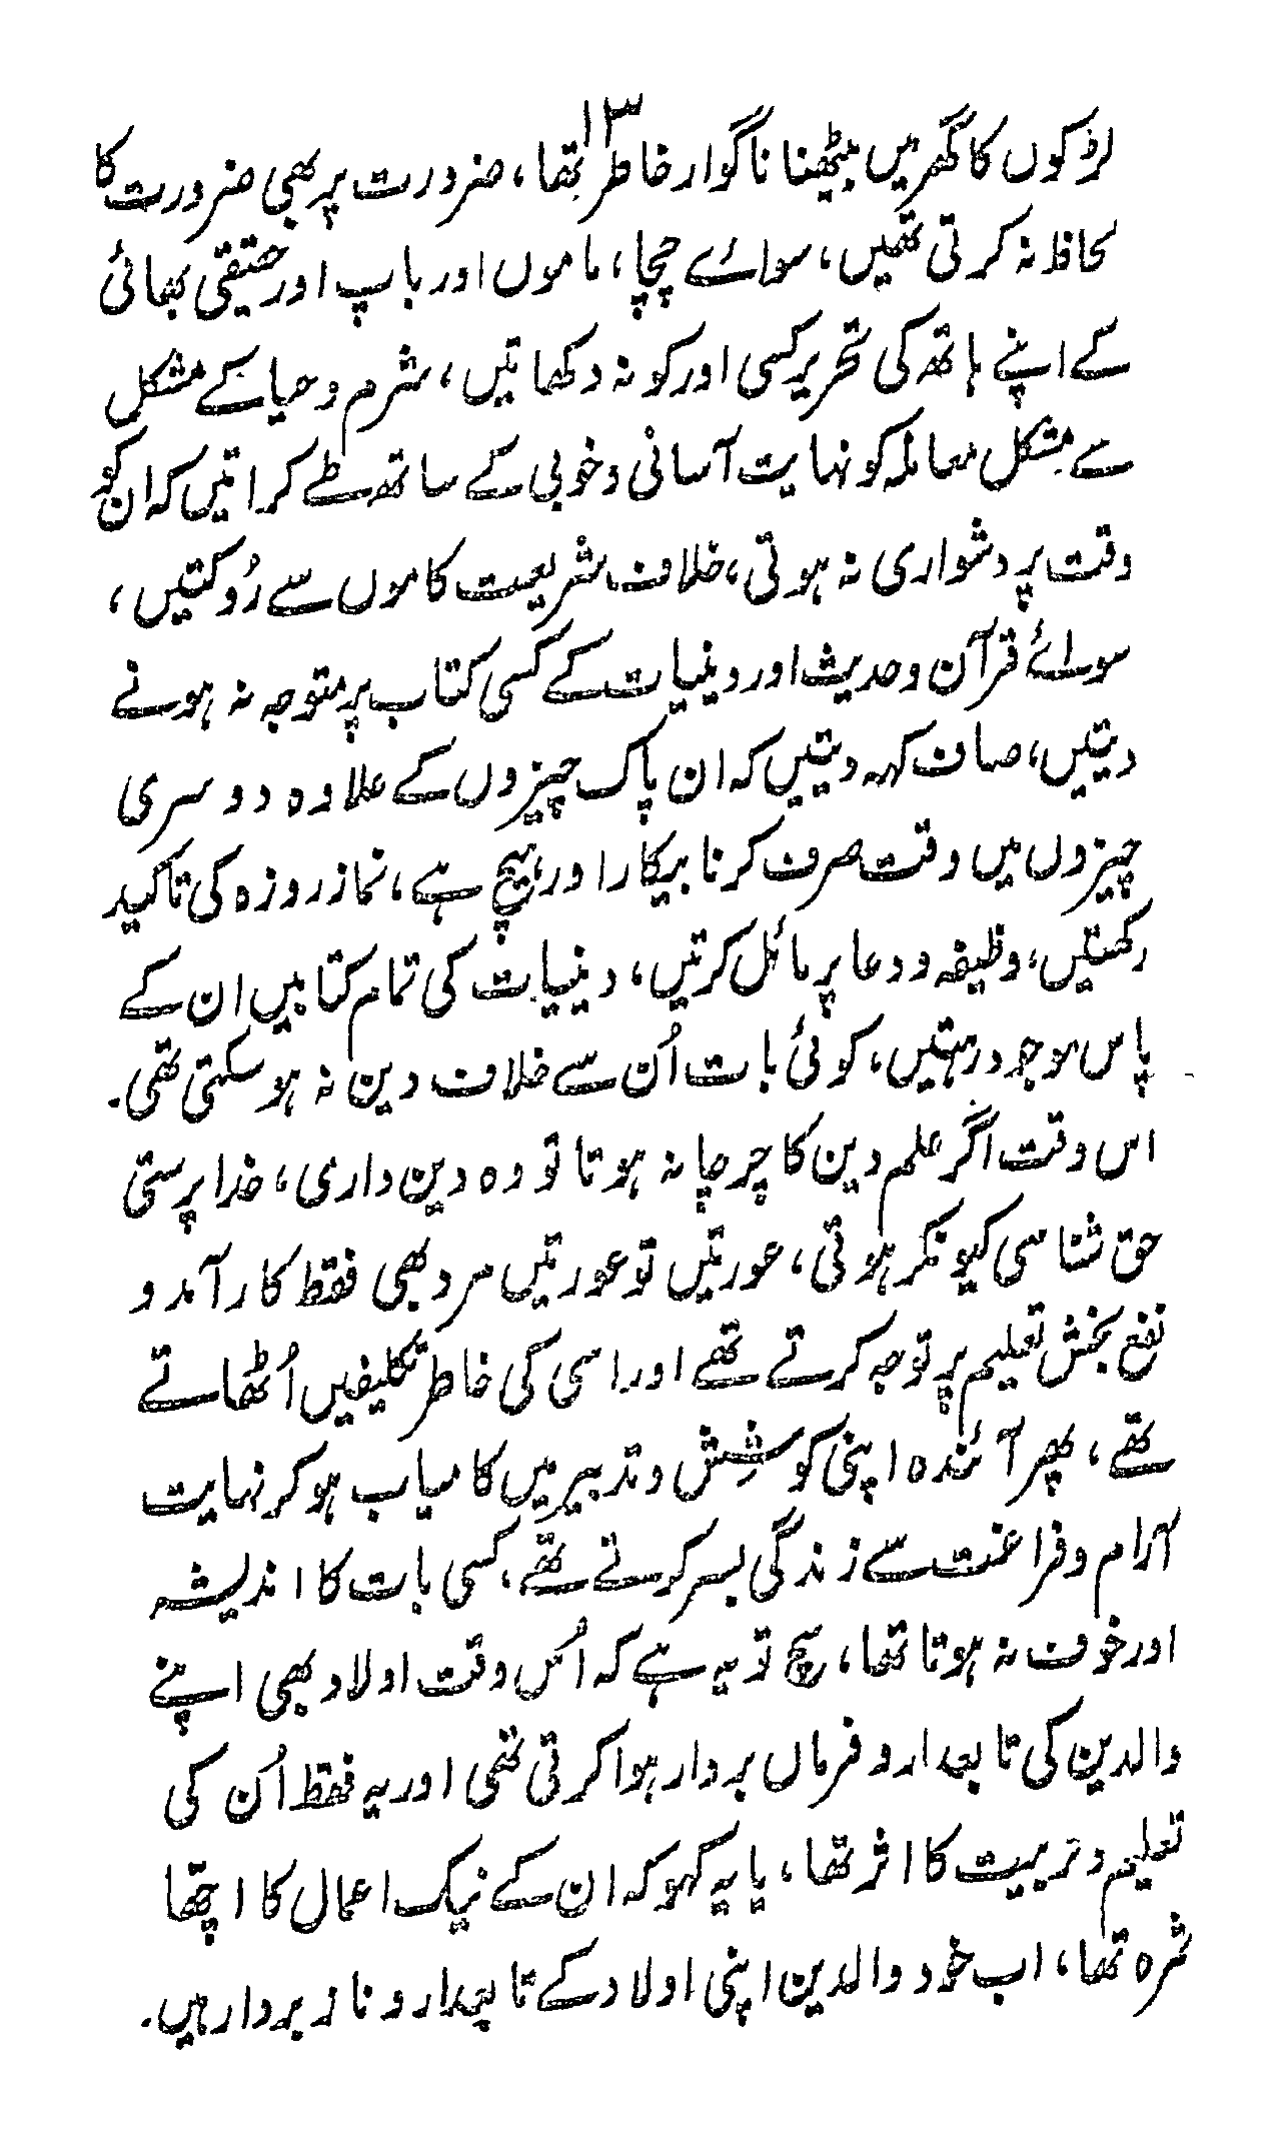 ۱۳
لڑکوں کا گھر میں بیٹھنا ناگوار خاطر تھا، ضرورت پر بھی ضرورت کا
لحاظ نہ کرتی تھیں، سوائے چچا، ماموں اور باپ اور حقیقی بھائی
کے اپنے ہاتھ کی تحریر کسی اور کو نہ دکھاتیں، شرم وحیا کے مشکل
سے مشکل معاملہ کو نہایت آسانی وخوبی کے ساتھ طے کراتیں کہ ان کو
وقت پر دشواری نہ ہوتی، خلاف شریعت کاموں سے رُوکتیں،
سوائے قرآن وحدیث اور دینیات کے کسی کتاب پر متوجہ نہ ہونے
دیتیں، صاف کہہ دیتیں کہ ان پاک چیزوں کے علاوہ دوسری
چیزوں میں وقت صرف کرنا بیکار اور ہیچ ہے، نماز روزہ کی تاکید
رکھتیں، وظیفہ و دعا پر مائل کرتیں، دینیات کی تمام کتابیں ان کے
پاس موجود رہتیں، کوئی بات اُن سے خلاف دین نہ ہو سکتی تھی۔
اس وقت اگر علم دین کا چرچا نہ ہوتا تو وہ دین داری، خدا پرستی
حق شناسی کیونکر ہوتی، عورتیں تو عورتیں مرد بھی فقط کارآمد و
نفع بخش تعلیم پر توجہ کرتے تھے اور اسی کی خاطر تکلیفیں اُٹھاتے
تھے، پھر آئندہ اپنی کوشِش و تدبیر میں کامیاب ہو کر نہایت
آرام وفراغت سے زندگی بسر کرتے تھے، کسی بات کا اندیشہ
اور خوف نہ ہوتا تھا، سچ تو یہ ہے کہ اُس وقت اولاد بھی اپنے
والدین کی تابعدار و فرماں بردار ہوا کرتی تھی اور یہ فقط اُن کی
تعلیم وتربیت کا اثر تھا، یا یہ کہو کہ ان کے نیک اعمال کا اچھّا
ثمرہ تھا، اب خود والدین اپنی اولاد کے تابعدار و ناز بردار ہیں۔